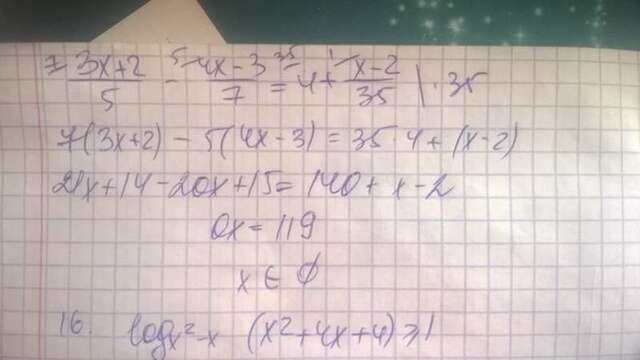 ⁷⁻ (3x+2)/5 - ⁵⁻ (4x-3)/7 = ³⁵⁻ 4 + ¹⁻ (x-2)/35 | · 35
7(3x+2) - 5(4x-3) = 35 · 4 + (x-2)
21x+14-20x+15=140+x-2
0x=119
x ∈ ∅
16. log x²-x (x²+4x+4) ≥ 1